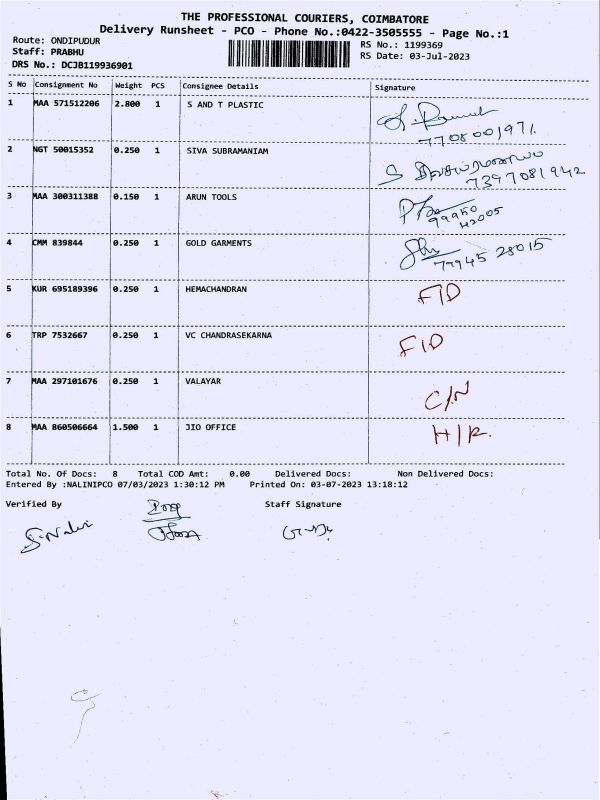 THE PROFESSIONAL COURIERS, COIMBATORE
Delivery Runsheet - PCO - Phone No.:0422-3505555 - Page No.:1
Route: ONDIPUDUR
Staff: PRABHU
DRS No.: DCJB119936901
RS No.: 1199369
RS Date: 03-Jul-2023
S No Consignment No Weight PCS Consignee Details Signature
1 MAA 571512206 2.800 1 S AND T PLASTIC
7708001971.
2 NGT 50015352 0.250 1 SIVA SUBRAMANIAM
7397081942
3 MAA 300311388 0.150 1 ARUN TOOLS
99950
42005
4 CMM 839844 0.250 1 GOLD GARMENTS
79945 28015
5 KUR 695189396 0.250 1 HEMACHANDRAN F/D
6 TRP 7532667 0.250 1 VC CHANDRASEKARNA F/D
7 MAA 297101676 0.250 1 VALAYAR C/N
8 MAA 860506664 1.500 1 JIO OFFICE H/R.
Total No. Of Docs: 8 Total COD Amt: 0.00 Delivered Docs: Non Delivered Docs:
Entered By :NALINIPCO 07/03/2023 1:30:12 PM Printed On: 03-07-2023 13:18:12
Verified By Staff Signature
S.Nalini